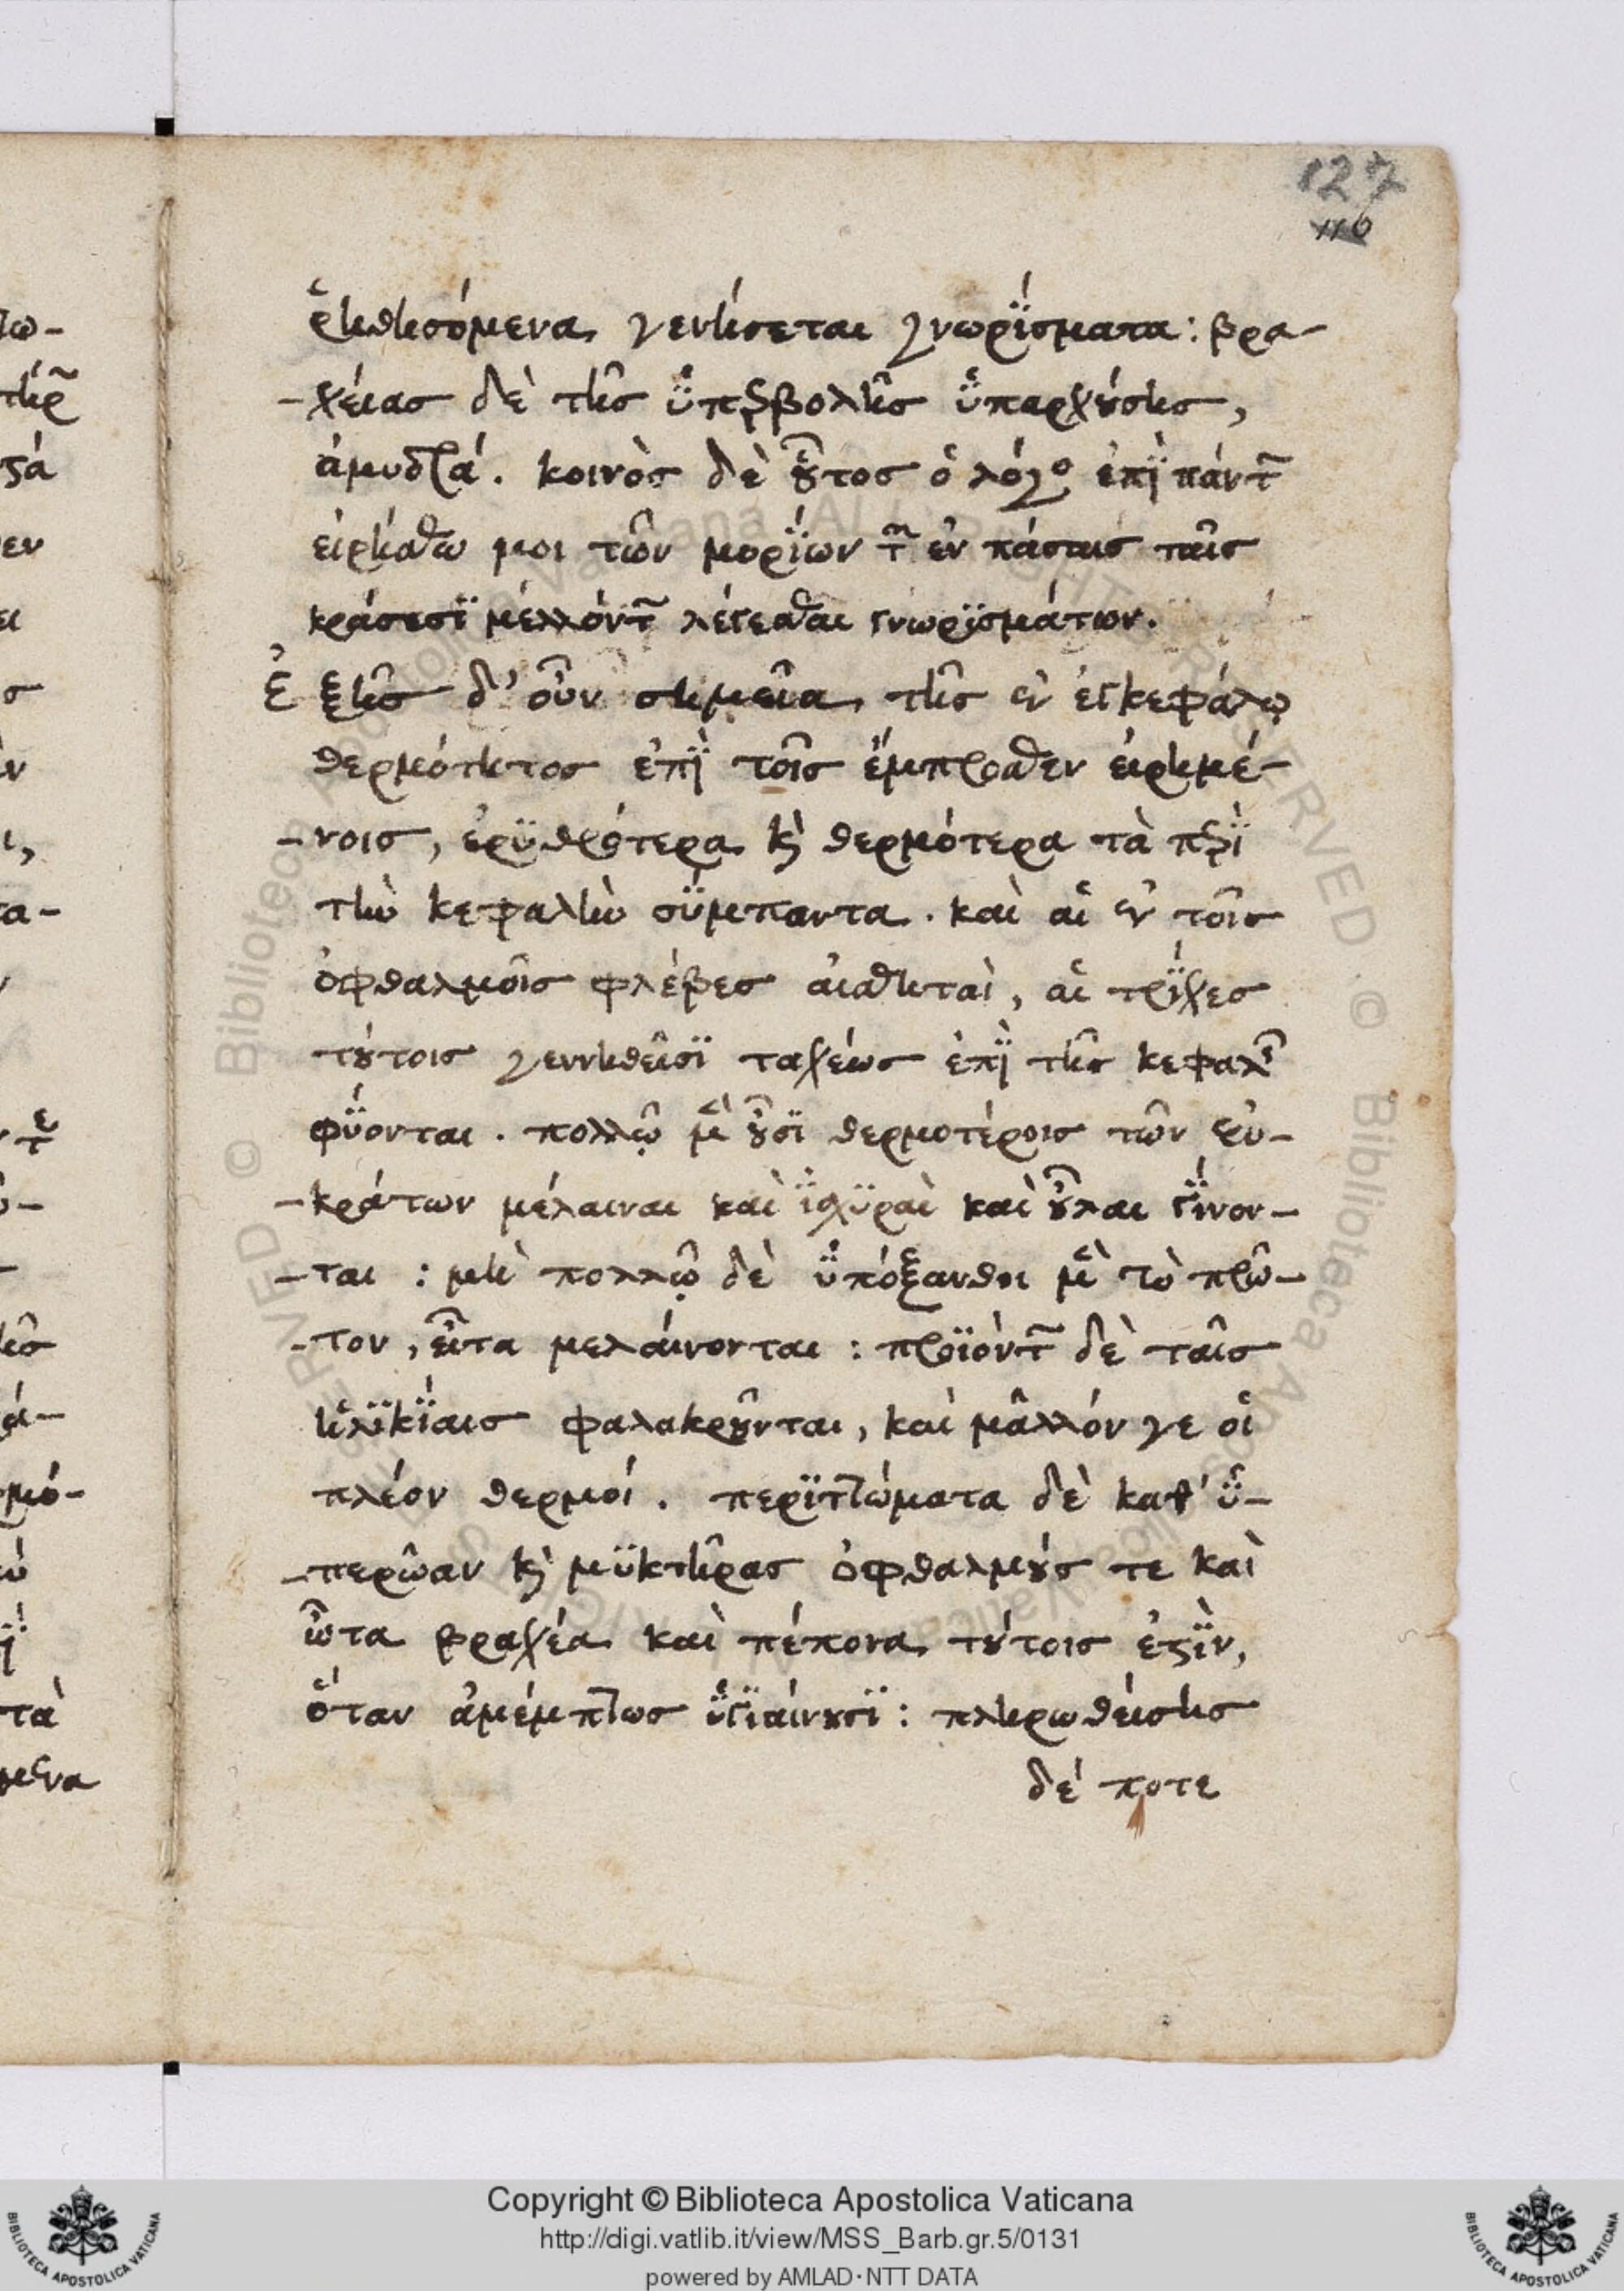 127
116
ῥηθησόμενα γενήσεται γνωρΐσματα: βρα-
-χείας δὲ τῆς ὑπερβολῆς ὑπαρχούσης,
ἀμυδρά. κοινὸς δὲ οὗτος ὁ λόγος ἐπῒ πάντων
εἰρήσθω μοι τῶν μορΐων τῶν ἐν πάσαις ταῖς
κράσεσϊ μελλόντων λέγεσθαι γνωρϊσμάτων.
Ἑξῆς δ' οὖν σημεῖα τῆς ἐν ἐγκεφάλῳ
θερμότητος ἐπῒ τοῖς ἔμπροσθεν εἰρημέ-
-νοις, ἐρϋθρότερα καὶ θερμότερα τὰ περῒ
τὴν κεφαλὴν σύμπαντα. καὶ αἱ ἐν τοῖς
ὀφθαλμοῖς φλέβες αἰσθηταὶ, αἱ τρΐχες
τούτοις γεννηθεῖσϊ ταχέως ἐπῒ τῆς κεφαλῆς
φΰονται. πολλῷ μὲν οὖσϊ θερμοτέροις τῶν εὐ-
-κράτων μέλαιναι καὶ ἰσχϋραὶ καὶ οὖλαι γΐνον-
-ται: μὴ πολλῷ δὲ ὑπόξανθοι μὲν τὸ πρῶ-
-τον, εἶτα μελαίνονται: προϊόντων δὲ ταῖς
ἡλϊκΐαις φαλακροῦνται, καὶ μᾶλλόν γε οἱ
πλέον θερμοί. περϊττώματα δὲ καθ' ὑ-
-περῶαν καὶ μϋκτῆρας ὀφθαλμούς τε καὶ
ὦτα βραχέα καὶ πέπονα τούτοις ἐστῒν,
ὅταν ἀμέμπτως ὑγϊαίνουσϊ: πληρωθείσης
δέ ποτε
Copyright © Biblioteca Apostolica Vaticana
http://digi.vatlib.it/view/MSS_Barb.gr.5/0131
powered by AMLAD·NTT DATA